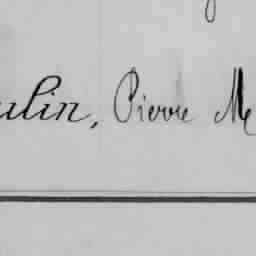 ulin, Pierre M